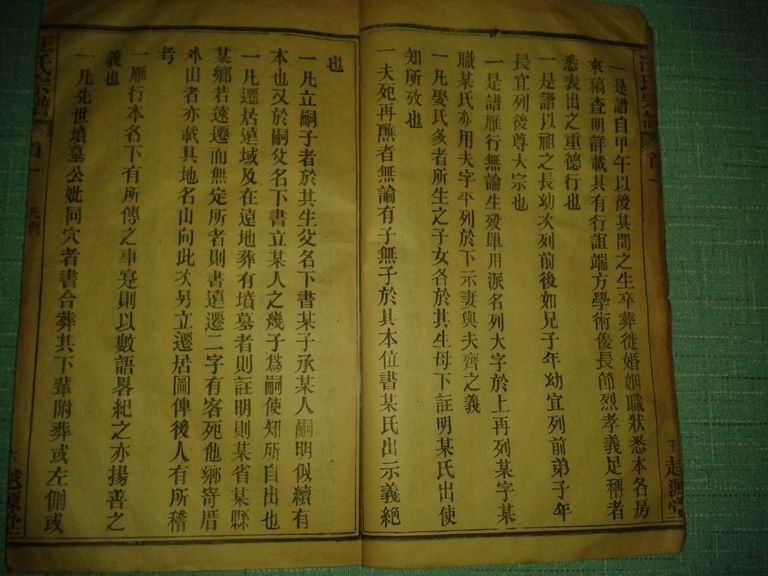 一是譜自甲午以後其間之生卒葬徙婚姻職狀悉本各房
來稿查明詳載其有行誼端方學術優長節烈孝義足稱者
悉表出之重德行也
一是譜以祖之長幼次列前後如兄子年幼宜列前弟子年
長宜列後尊大宗也
一是譜雁行無論生歿單用派名列大字於上再列某字某
職某氏亦用夫字平列於下示妻與夫齊之義
一凡娶氏多者所生之子女各於其生母下註明某氏出使
知所攷也
一夫死再醮者無論有子無子於其本位書某氏出示義絕
也
一凡立嗣子者於其生父名下書某子承某人嗣明似續有
本也又於嗣父名下書立某人之幾子爲嗣使知所自出也
一凡遷居遠域及在遠地葬有墳墓者則註明則某省某縣
某鄉若遂遷而無定所者則書遠遷二字有客死他鄉寄厝
外山者亦載其地名山向此次另立遷居圖俾後人有所稽
考
一雁行本名下有所傳之事寔則以數語畧紀之亦揚善之
義也
一凡先世墳墓公妣同穴者書合葬其下輩附葬或左側或
汪氏宗譜
首一
凡例
越源堂